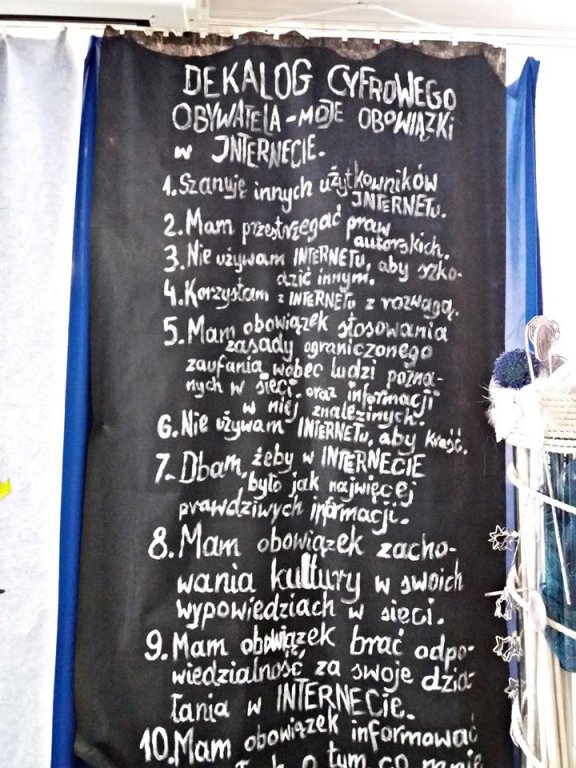 DEKALOG CYFROWEGO
OBYWATELA - MOJE OBOWIĄZKI
W INTERNECIE.
1. Szanuję innych użytkowników
INTERNETU.
2. Mam przestrzegać praw
autorskich.
3. Nie używam INTERNETU, aby szko-
dzić innym.
4. Korzystam z INTERNETU z rozwagą.
5. Mam obowiązek stosowania
zasady ograniczonego
zaufania wobec ludzi pozna-
nych w sieci oraz informacji
w niej znalezinych.
6. Nie używam INTERNETU, aby kraść.
7. Dbam, żeby w INTERNECIE
było jak najwięcej
prawdziwych informacji.
8. Mam obowiązek zacho-
wania kultury w swoich
wypowiedziach w sieci.
9. Mam obowiązek brać odpo-
wiedzialność za swoje dzia-
łania w INTERNECIE.
10. Mam obowiązek informować
o tym co mnie